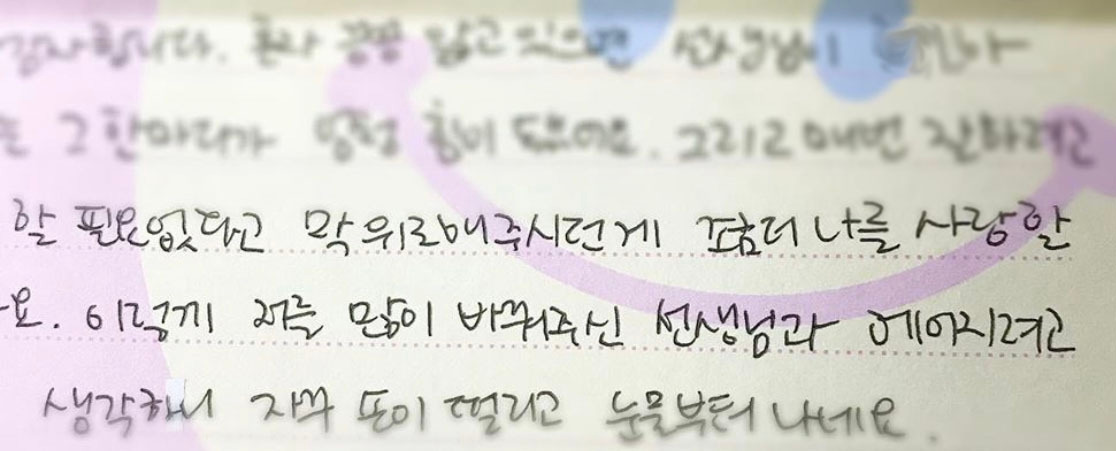 감사합니다. 혼자 끙끙 앓고 있으면 선생님이
그 한마디가 엄청 힘이 됐어요. 그리고 매번 잘하려고
할 필요없다고 막 위로해주시던게 좀더 나를 사랑할
요. 이렇게 저를 많이 바꿔주신 선생님과 헤어지려고
생각하니 자꾸 손이 떨리고 눈물부터 나네요.